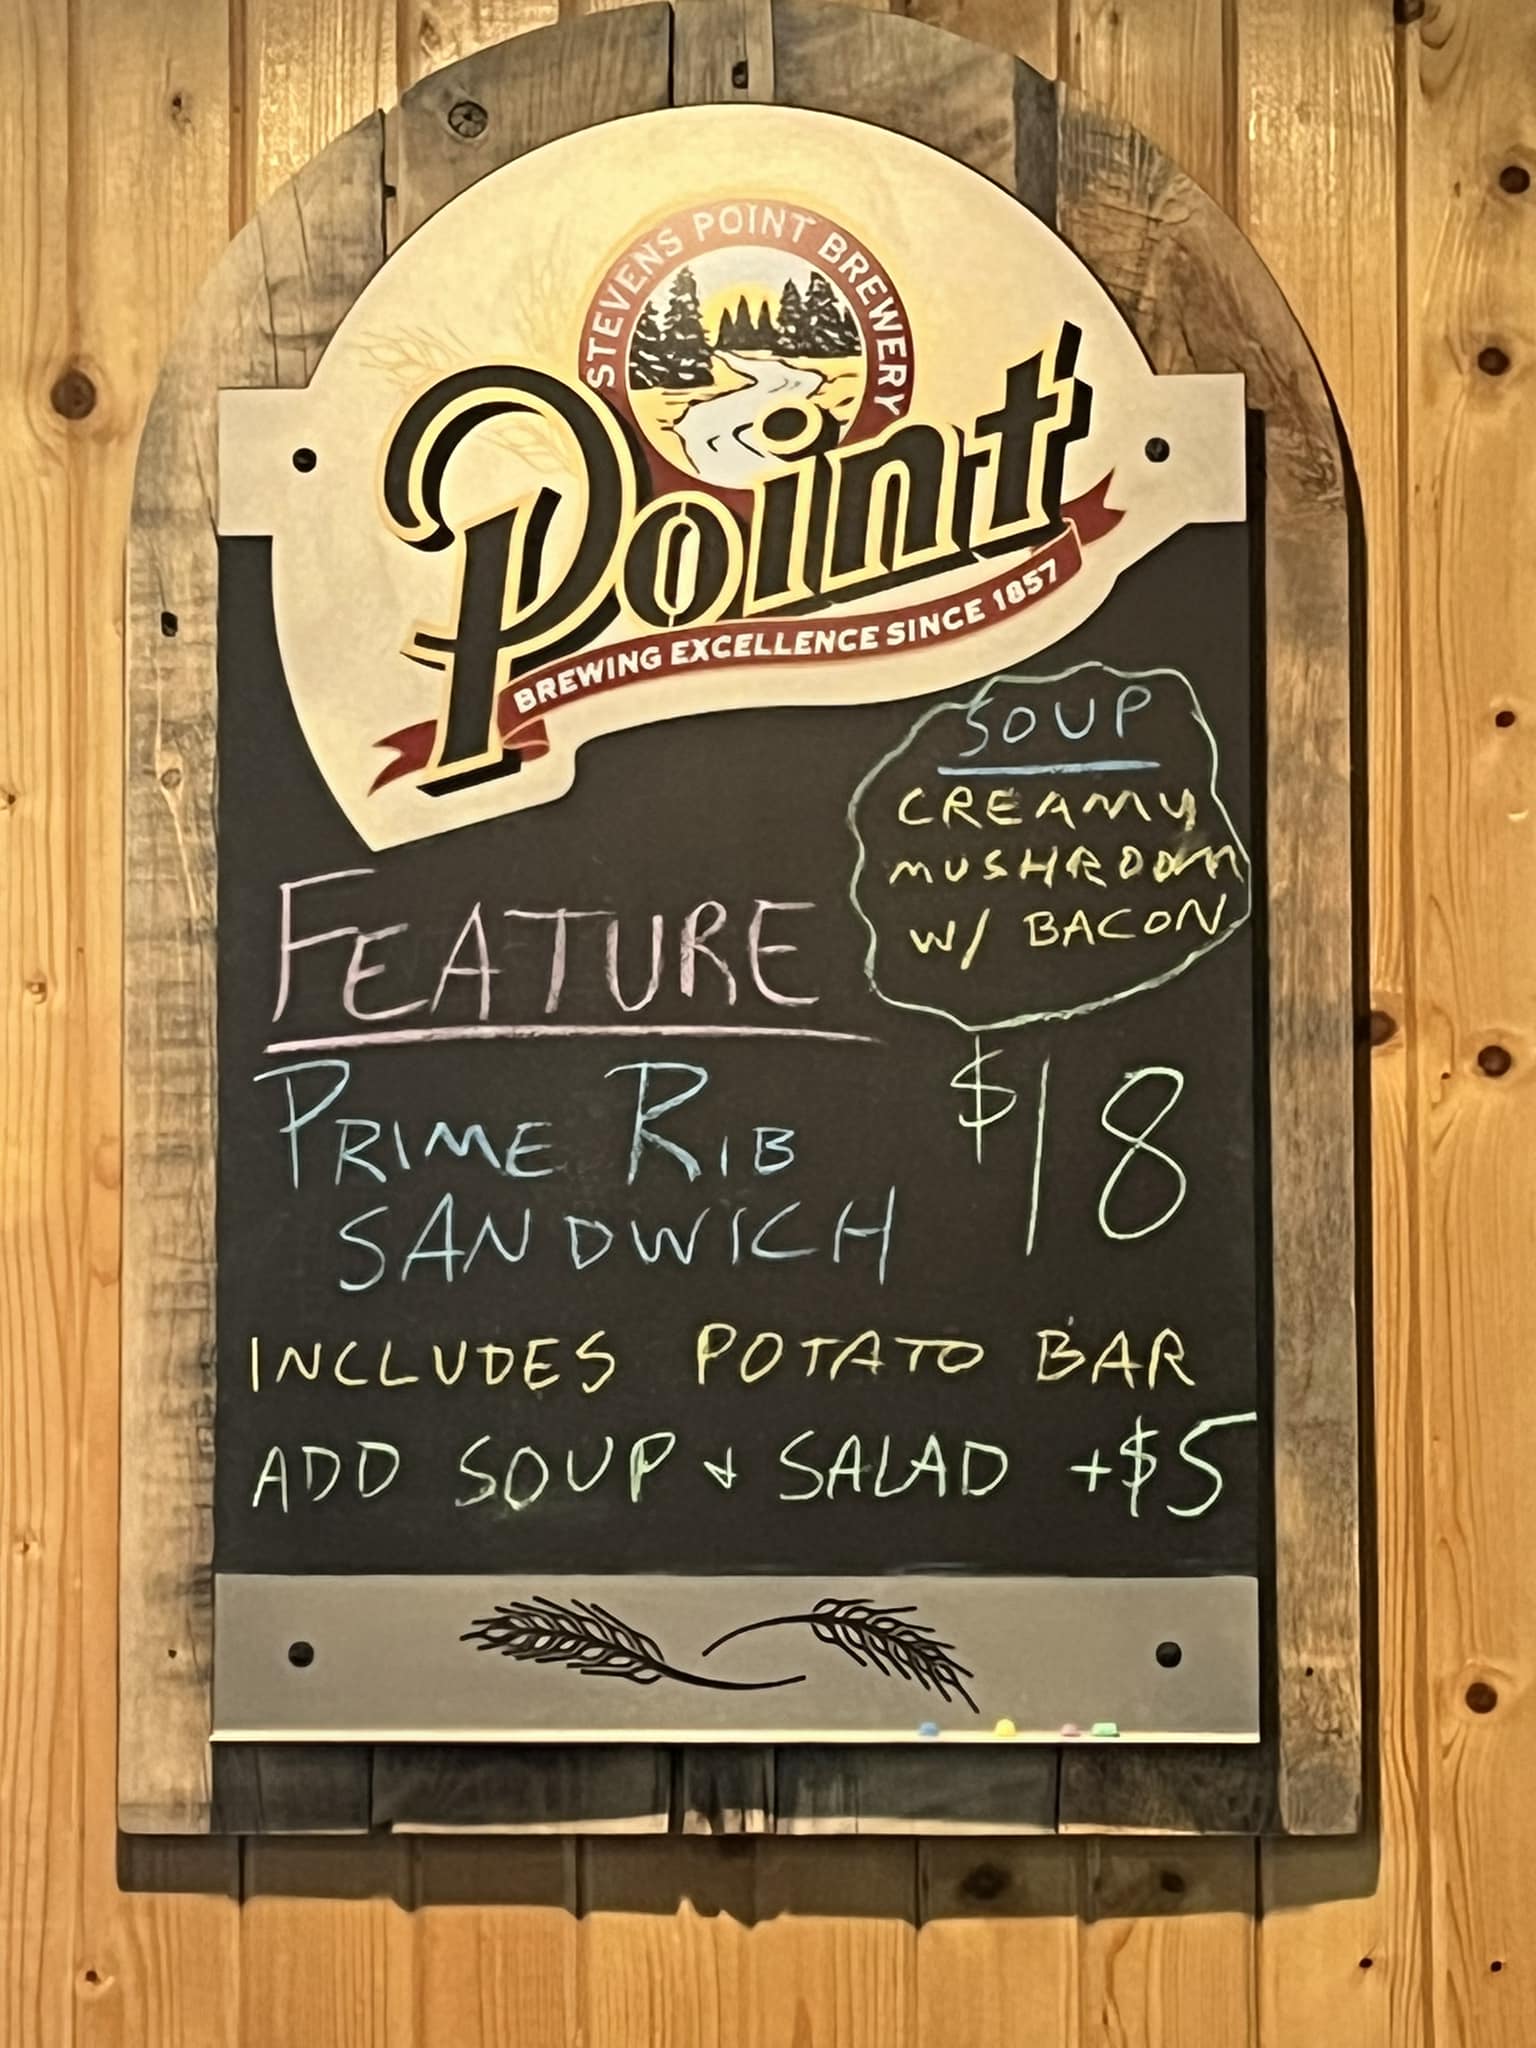 STEVENS POINT BREWERY
Point
BREWING EXCELLENCE SINCE 1857
SOUP
CREAMY
MUSHROOM
W/ BACON
FEATURE
PRIME RIB $18
SANDWICH
INCLUDES POTATO BAR
ADD SOUP & SALAD +$5